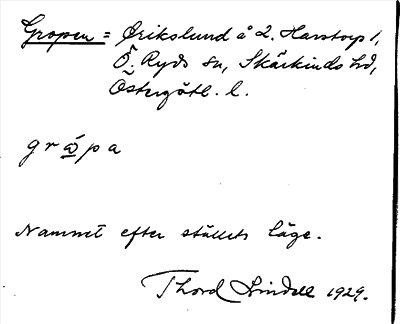 Gropen = Erikslund å 2. Harstorp 1,
Ö. Ryds sn, Skärkinds hd,
Östergötl. l.
grɷ́pa
Namnet efter ställets läge.
Thord Lindell 1929.